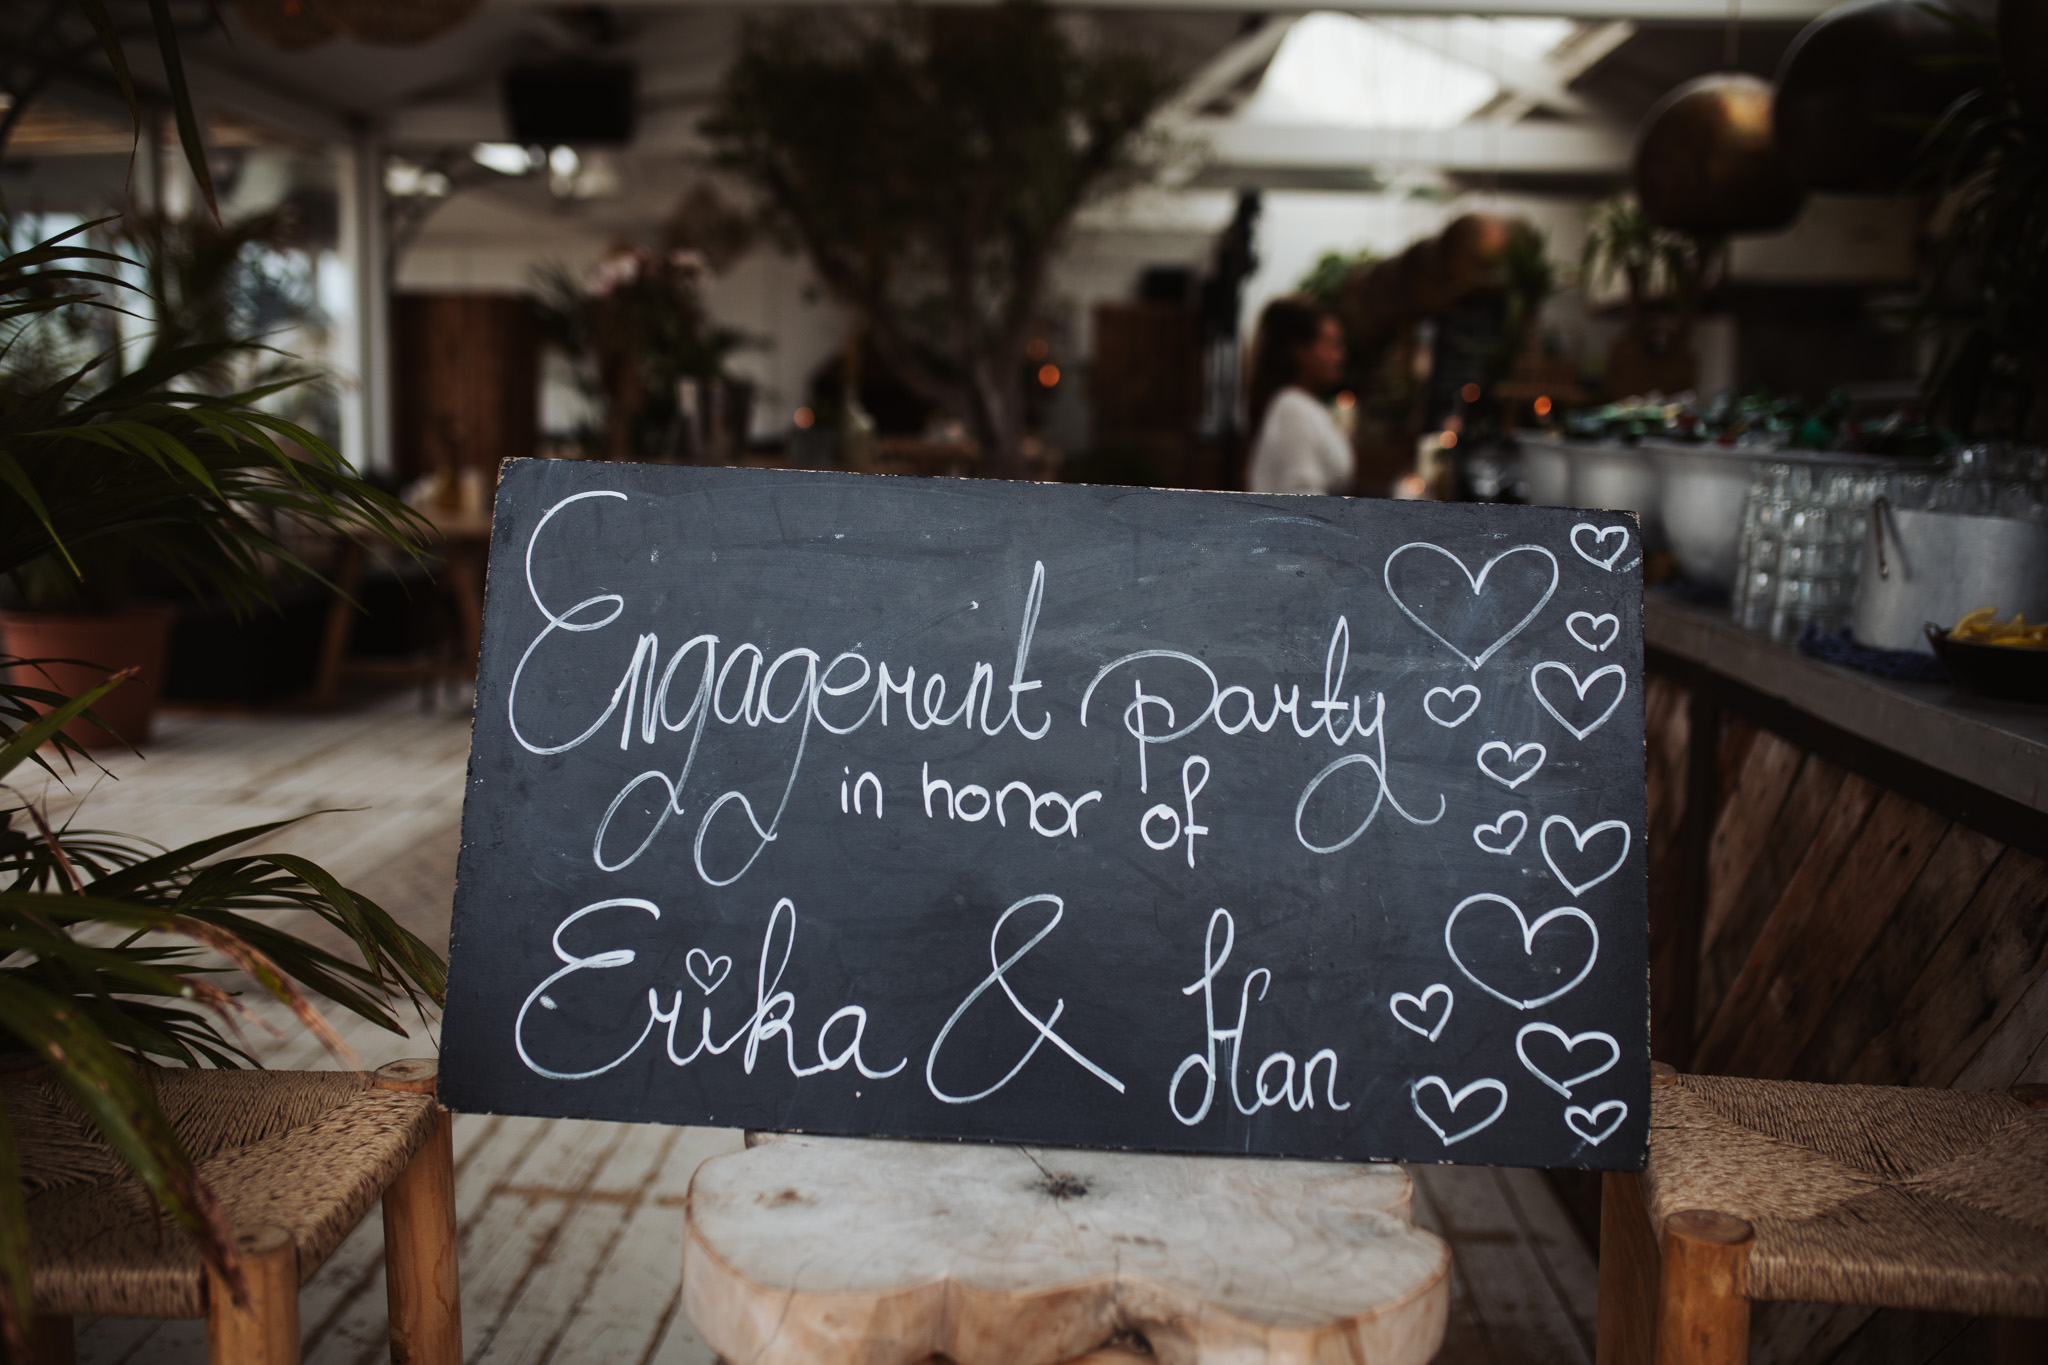 Engagement Party
in honor of
Erika & Han